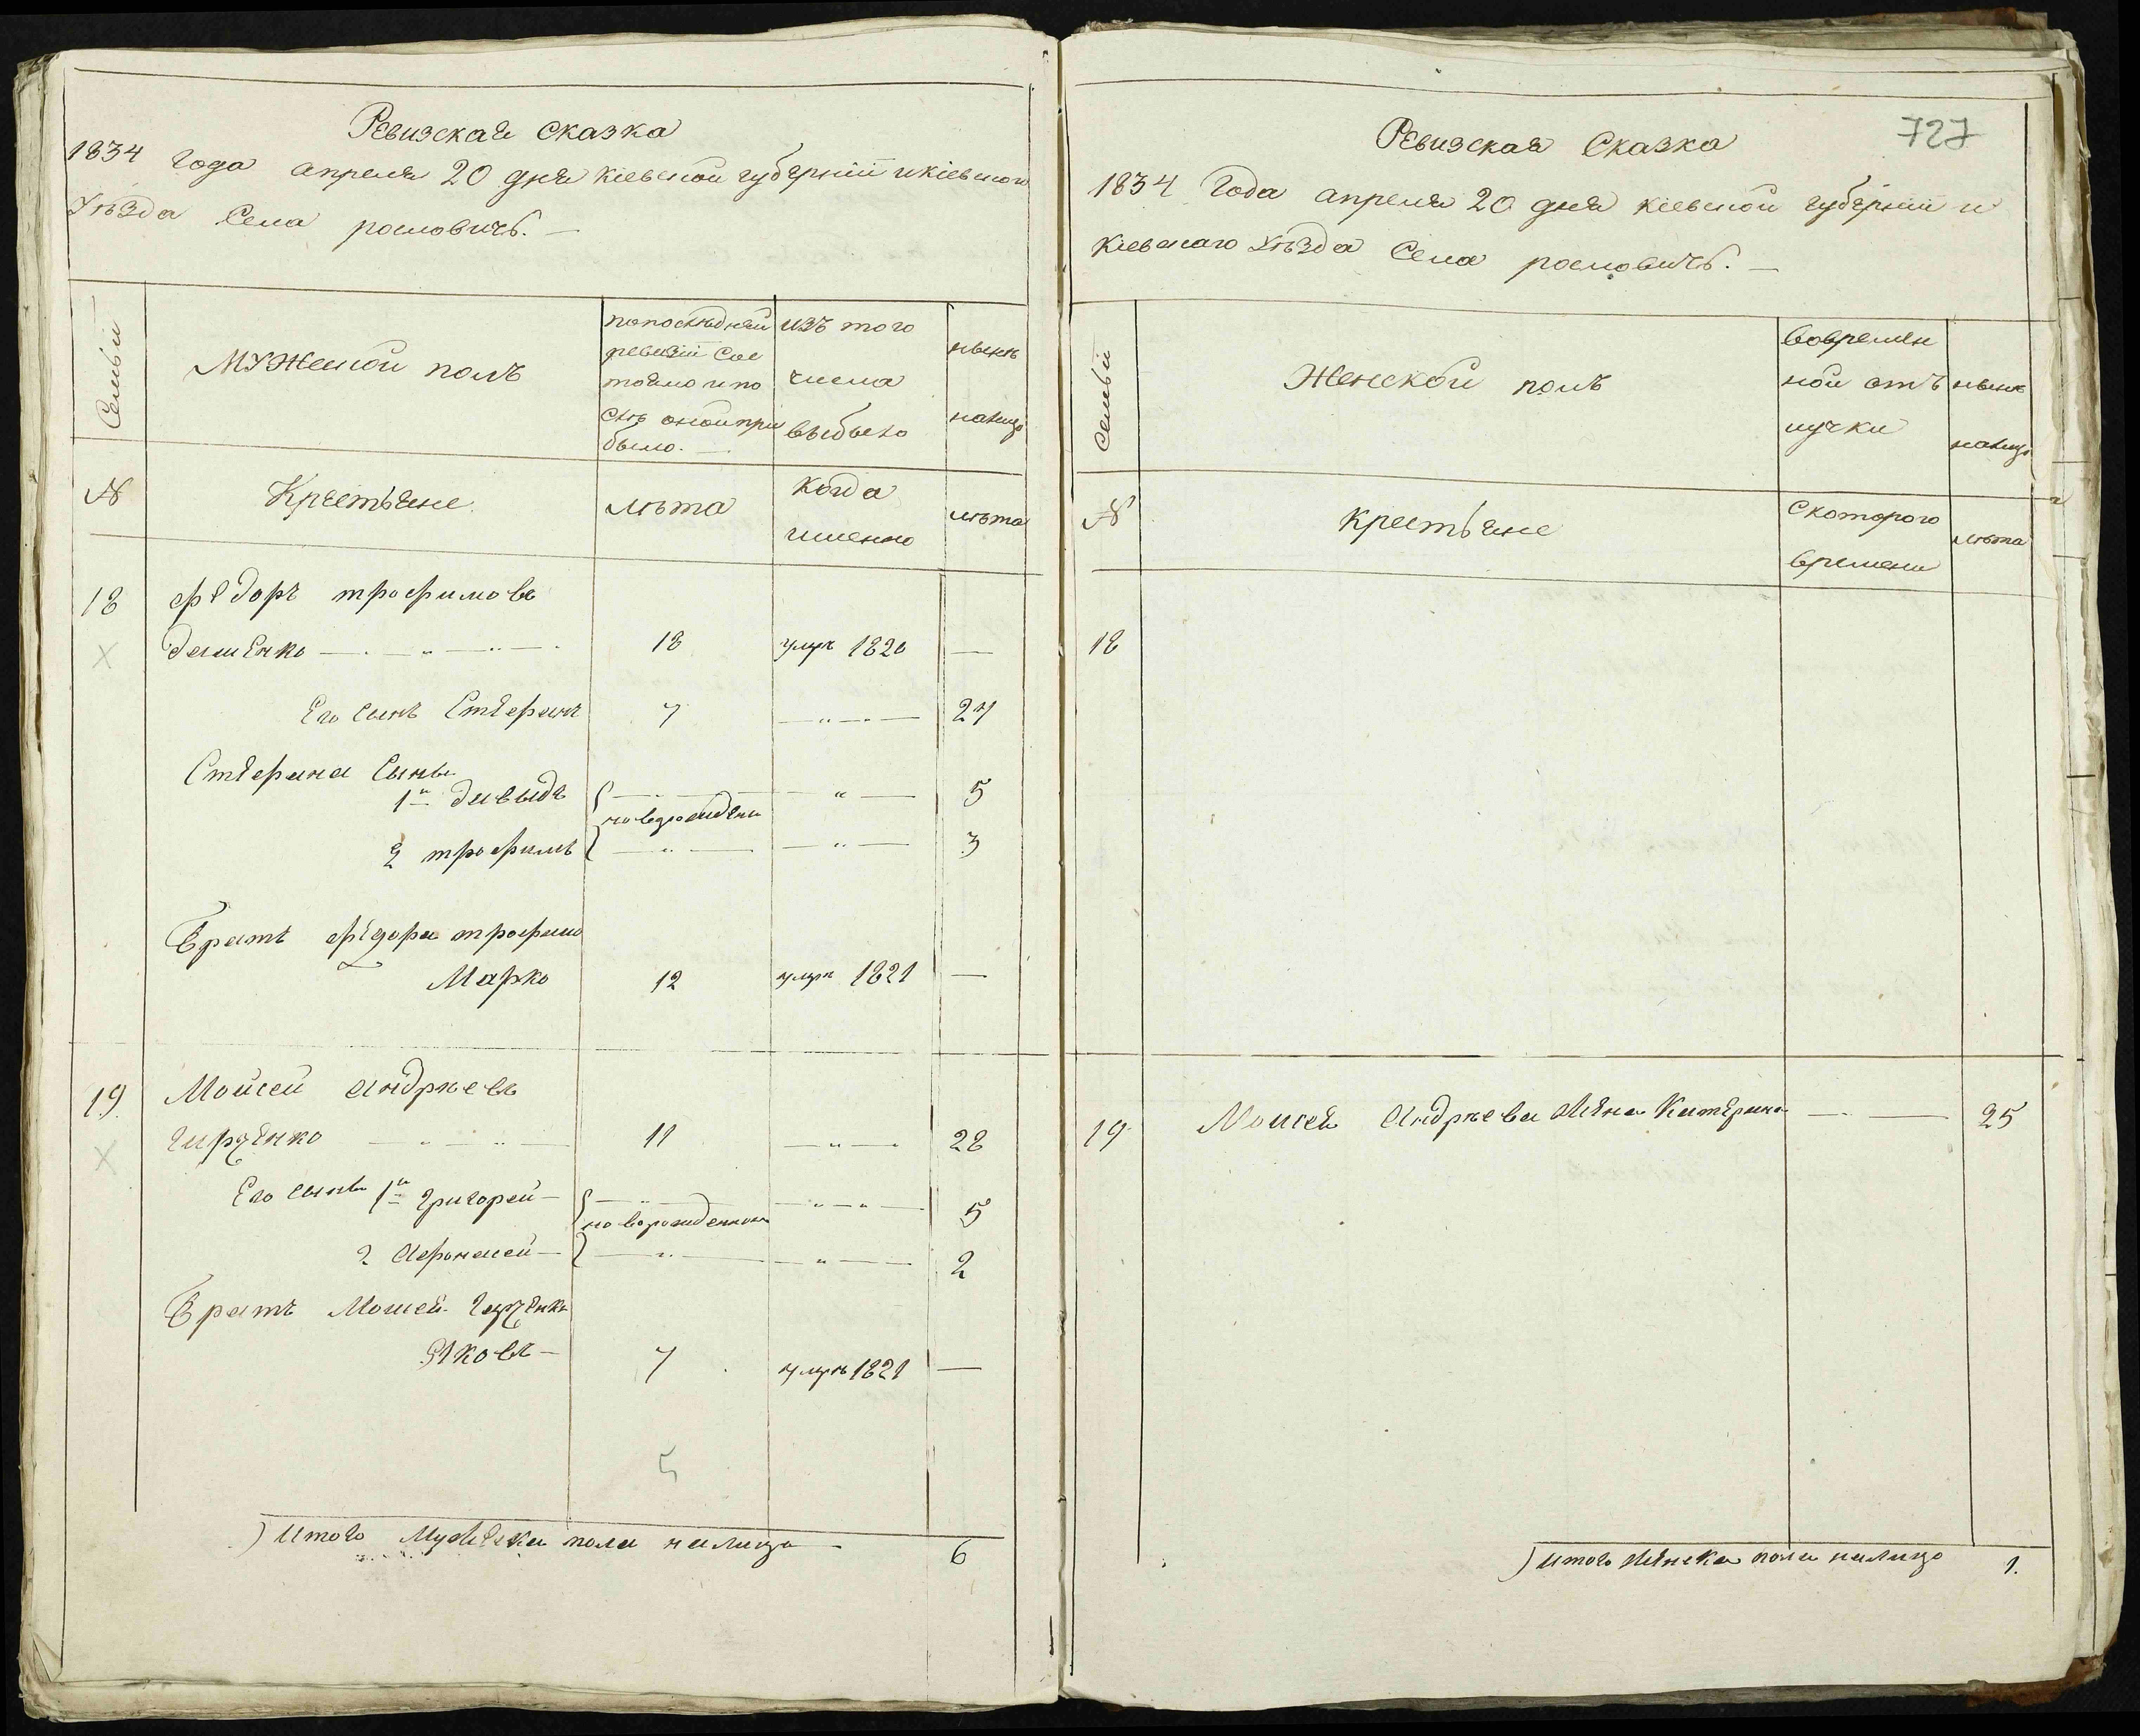 Ревизская Сказка
1834 года апреля 20 дня кіевской губерніи и кіевского
Уѣзда Села рословичъ. —
Семьи
Мужеской полъ
попослѣдней
ревизіи сос
тояло и по
слѣ оной при
было. —
изъ того
числа
выбыло
нынѣ
налицо
№
Крестьяне
лѣта
когда
именно
лѣта
18
Федоръ трофимовъ
— 18 умръ 1820 —
Его сынъ Стефанъ 7 — 27
Стефана Сыны
1й давыдъ — 5
новорождены
2 трофимъ — 3
Братъ федора трофимо
Марко 12 умръ 1821 —
19 Мойсей Андрѣевъ
— 11 — 28
Его сыны 1й григорей — 5
новорожденны
2 Афонасей — 2
Братъ Мойсея
Яковъ — 7 умръ 1821 —
5
Итого Мужеска пола налицо — 6
727
Ревизская Сказка
1834 Года апреля 20 дня кіевской губерніи и
кіевскаго Уѣзда Села рословичъ. —
Семьи
Женской полъ
вовремен
ной отъ
лучки
нынѣ
налицо
№
крестьяне
Скоторого
времени
лѣта
18
19 Мойсея Андрѣева жена Катерина — 25
Итого женска пола налицо 1.